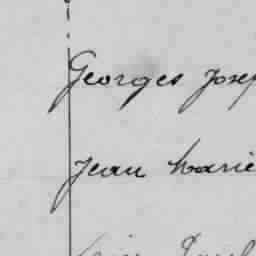 Georges Josep
Jean Marie